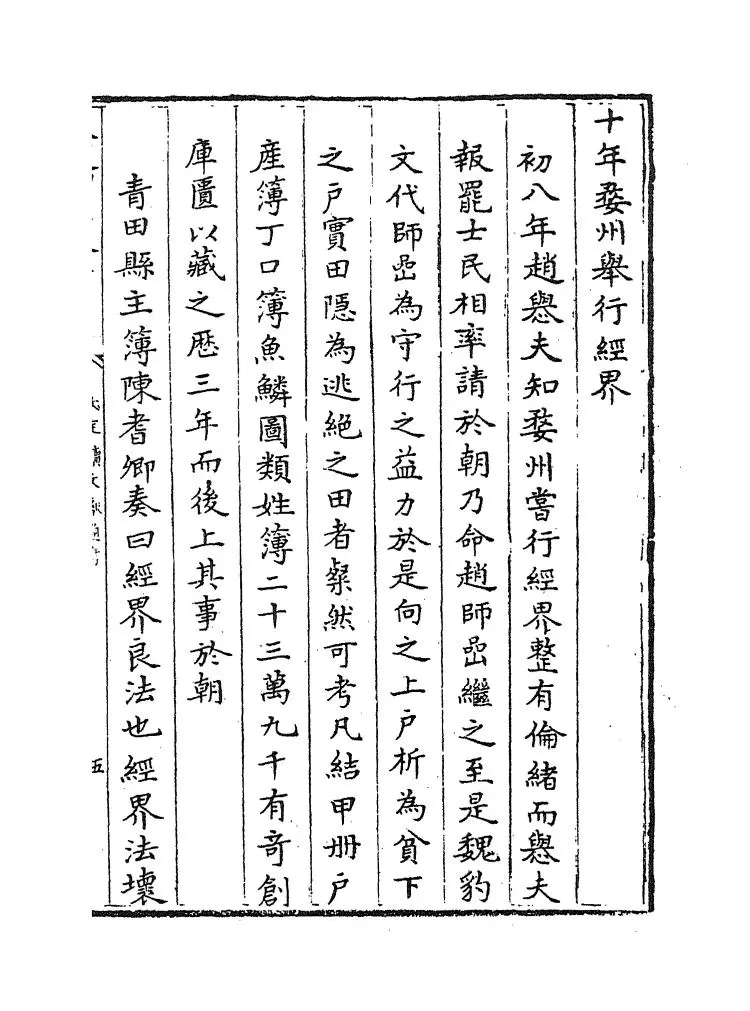 十年婺州舉行經界
初八年趙𢍰夫知婺州嘗行經界整有倫緒而𢍰夫
報罷士民相率請於朝乃命趙師嵒繼之至是魏豹
文代師嵒為守行之益力於是向之上戶析為貧下
之戶實田隱為逃絶之田者粲然可考凡結甲冊戶
產簿丁口簿魚鱗圖類姓簿二十三萬九千有奇創
庫匱以藏之歴三年而後上其事於朝
青田縣主簿陳耆卿奏曰經界良法也經界法壞
五